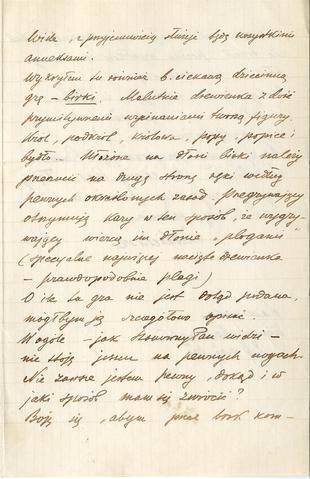 Wilk, z przyjemnością służę tymi wszystkimi
anneksami.
Wykryłem tu również b. ciekawą dziecinną
grę – birki. Malutkie drewienka z dość
prymitywnemi wycinaniami tworzą figury
Król, podkról, królowa, popy, popice i
bydło. Ułożone na dłoni birki należy
przerzucić na drugą stronę ręki według
pewnych określonych zasad. Przegrywający
otrzymują kary w ten sposób, że wygry-
wający wiercą im dłonie „plogami"
(specjalne najwięcej nacięte drewienka
– prawdopodobnie plagi)
O ile ta gra nie jest dotąd podana,
mógłbym ją szczegółowo opisać.
W ogóle – jak Szanowny Pan widzi –
nie stoję jeszcze na pewnych nogach.
Nie zawsze jestem pewny, dokąd i w
jaki sposób mam się zwrócić?
Boję się, abym przez brak kom-